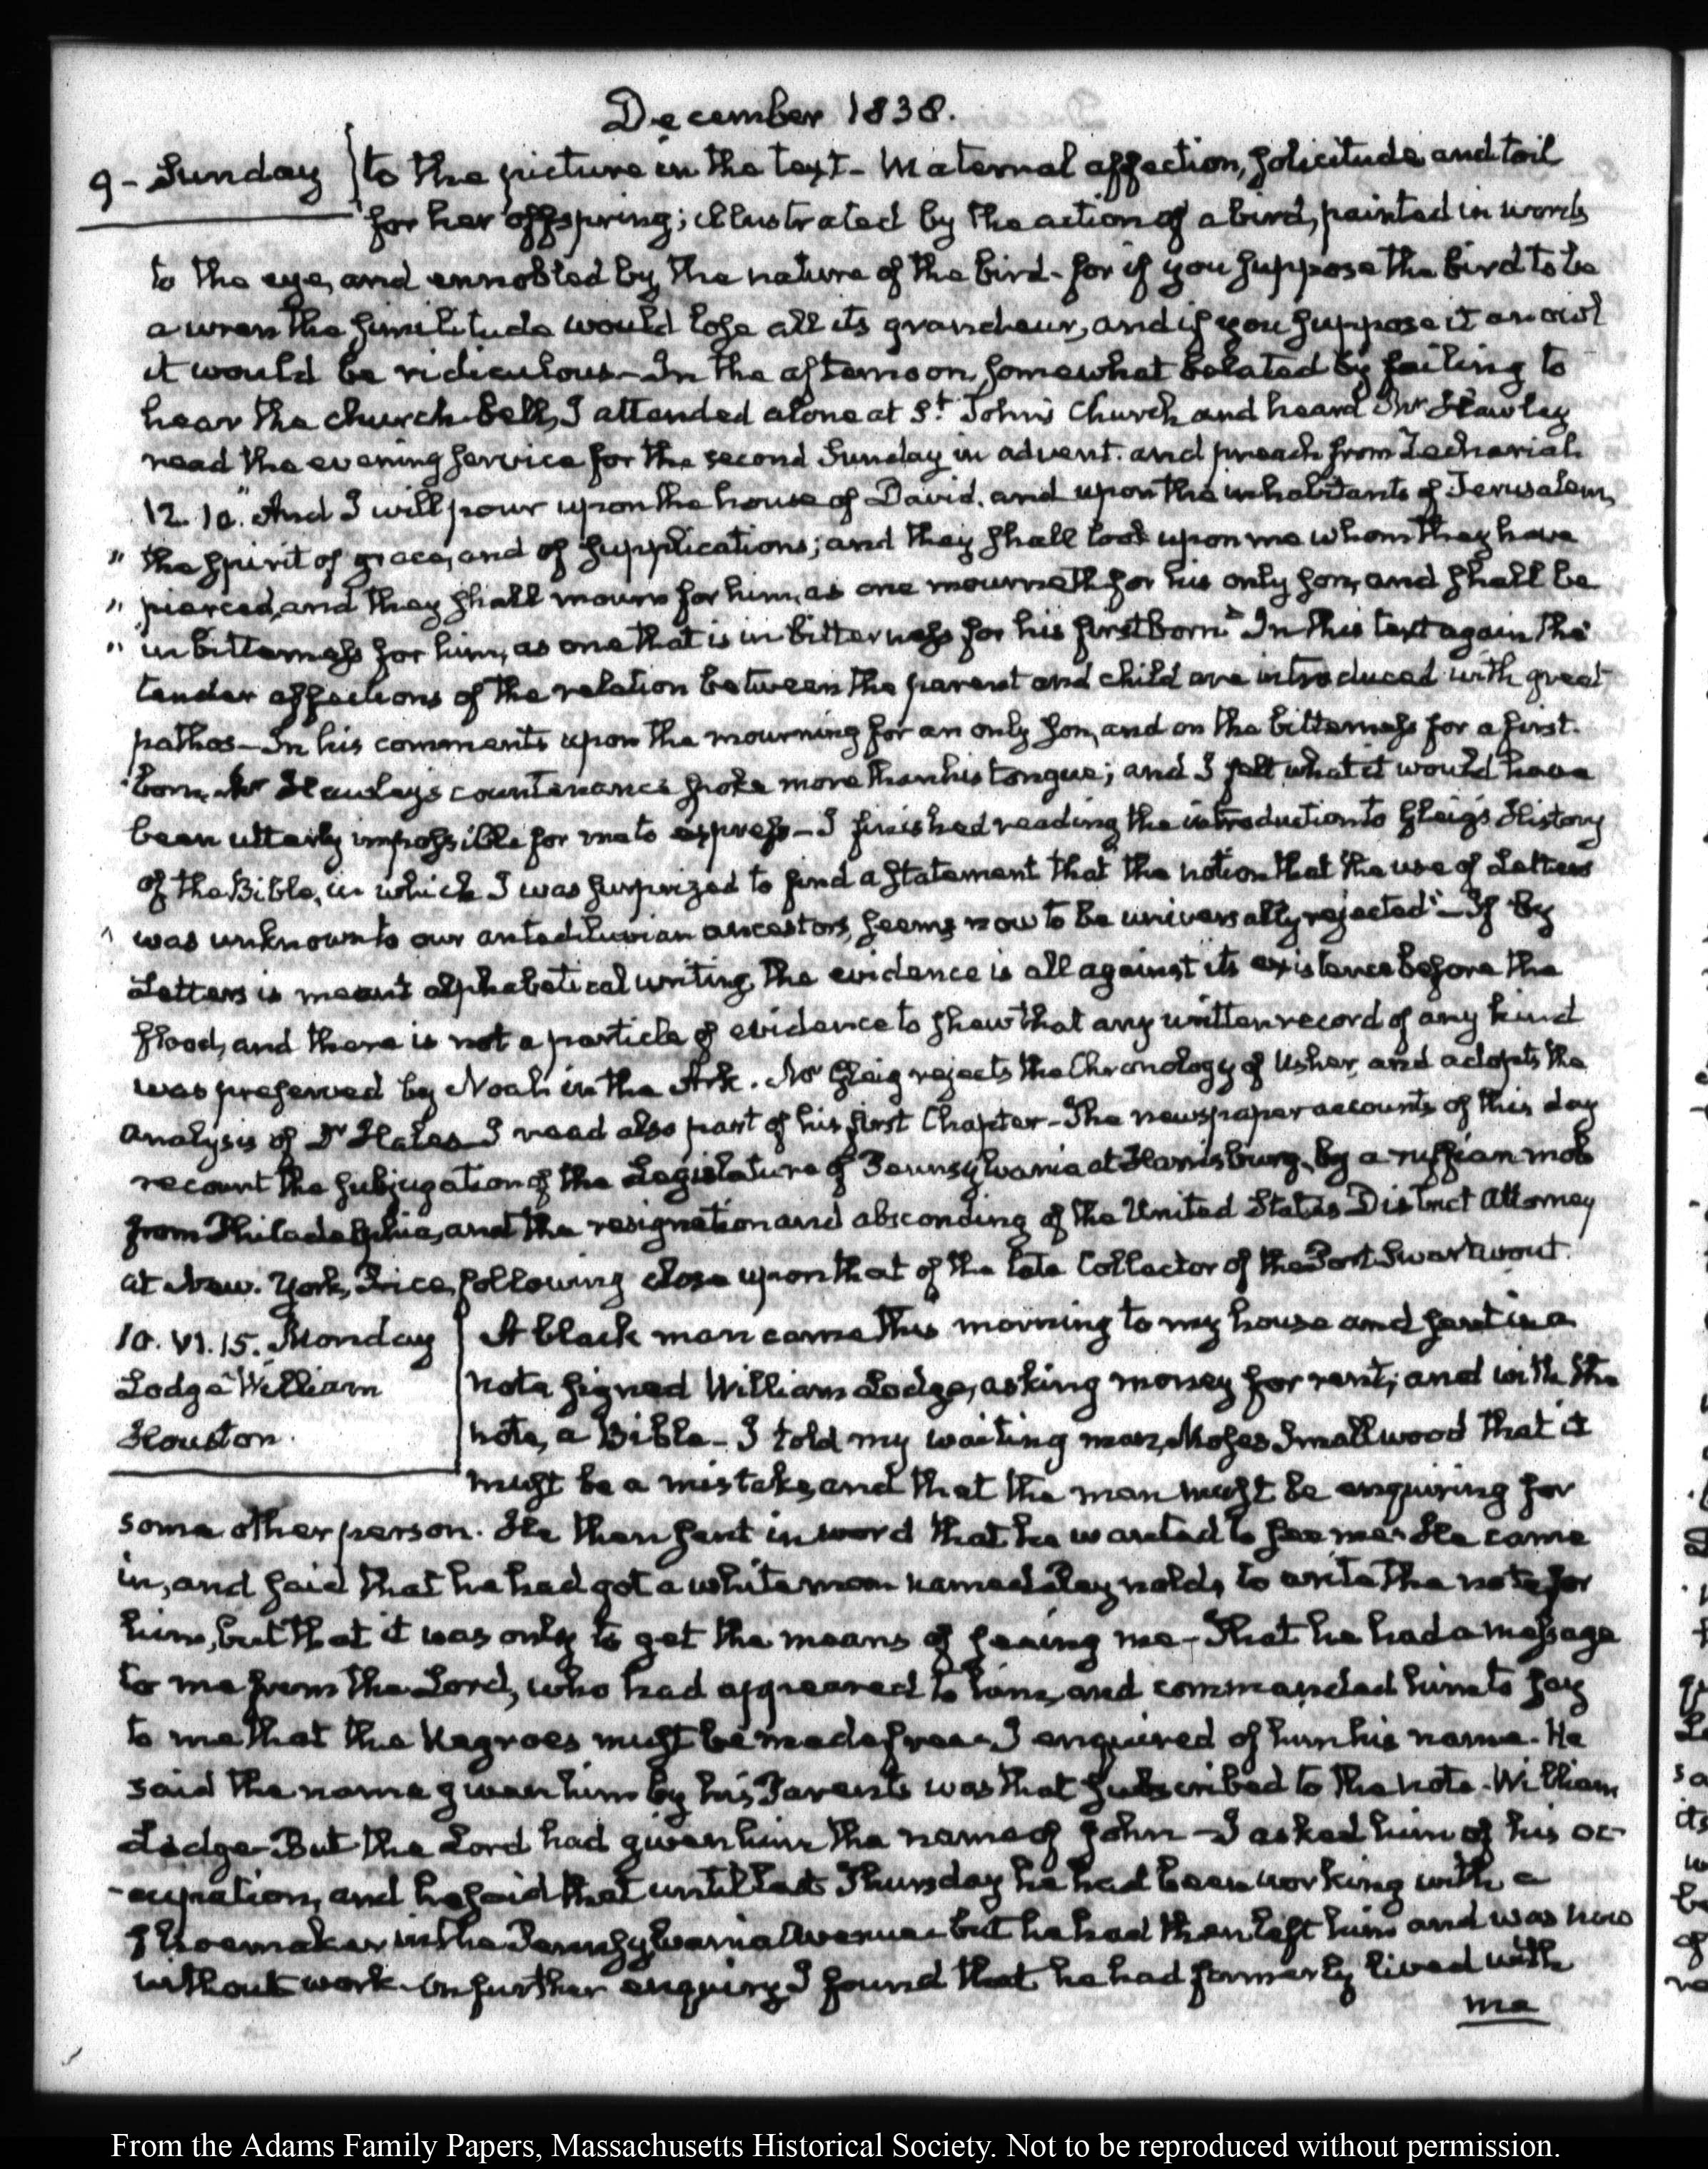 December 1838.
9 - Sunday } to the picture in the text - Maternal affection, solicitude and toil
for her offspring; illustrated by the action of a bird, painted in words
to the eye, and ennobled by the nature of the bird - for if you suppose the bird to be
a wren the similitude would lose all its grandeur, and if you suppose it an owl
it would be ridiculous - In the afternoon, somewhat belated by failing to
hear the church bell, I attended alone at St. John's Church and heard Mr Hawley
read the evening service for the second Sunday in advent. and preach from Zechariah
12. 10. "And I will pour upon the house of David. and upon the inhabitants of Jerusalem,
" the spirit of grace, and of supplications; and they shall look upon me whom they have
" pierced, and they shall mourn for him, as one mourneth for his only son, and shall be
" in bitterness for him, as one that is in bitterness for his firstborn" In this text again the
tender affections of the relation between the parent and child are introduced with great
pathos - In his comments upon the mourning for an only son, and on the bitterness for a first-
born, Mr Hawley's countenance spoke more than his tongue; and I felt what it would have
been utterly impossible for me to express - I finished reading the introduction to Gleig's History
of the Bible, in which I was surprized to find a statement that the notion that the use of Letters
" was unknown to our antediluvian ancestors, seems now to be universally rejected" - If by
Letters is meant alphabetical writing, the evidence is all against its existence before the
flood, and there is not a particle of evidence to shew that any written record of any kind
was preserved by Noah in the Ark. Mr Gleig rejects the Chronology of Usher, and adopts the
analysis of Dr Hales - I read also part of his first Chapter - The newspaper accounts of this day
recount the subjugation of the Legislature of Pennsylvania at Harrisburg, by a ruffian mob
from Philadelphia, and the resignation and absconding of the United States District Attorney
at New-York, Price, following close upon that of the late Collector of the Port Swartwout.
10. VI. 15. Monday
Lodge William
Houston.
A black man came this morning to my house and sent in a
note signed William Lodge, asking money for rent; and with the
note, a Bible - I told my waiting man, Moses Smallwood that it
must be a mistake, and that the man must be enquiring for
some other person. He then sent in word that he wanted to see me. He came
in, and said that he had got a white man named Reynolds, to write the note for
him, but that it was only to get the means of seeing me - That he had a message
to me from the Lord, who had appeared to him, and commanded him to say
to me that the Negroes must be made free - I enquired of him his name. He
said the name given him by his Parents was that subscribed to the note - William
Lodge - But the Lord had given him the name of John - I asked him of his oc-
-cupation, and he said that until last Thursday he had been working with a
shoemaker in the Pennsylvania Avenue - but he had then left him and was now
without work - On further enquiry I found that he had formerly lived with
me
From the Adams Family Papers, Massachusetts Historical Society. Not to be reproduced without permission.